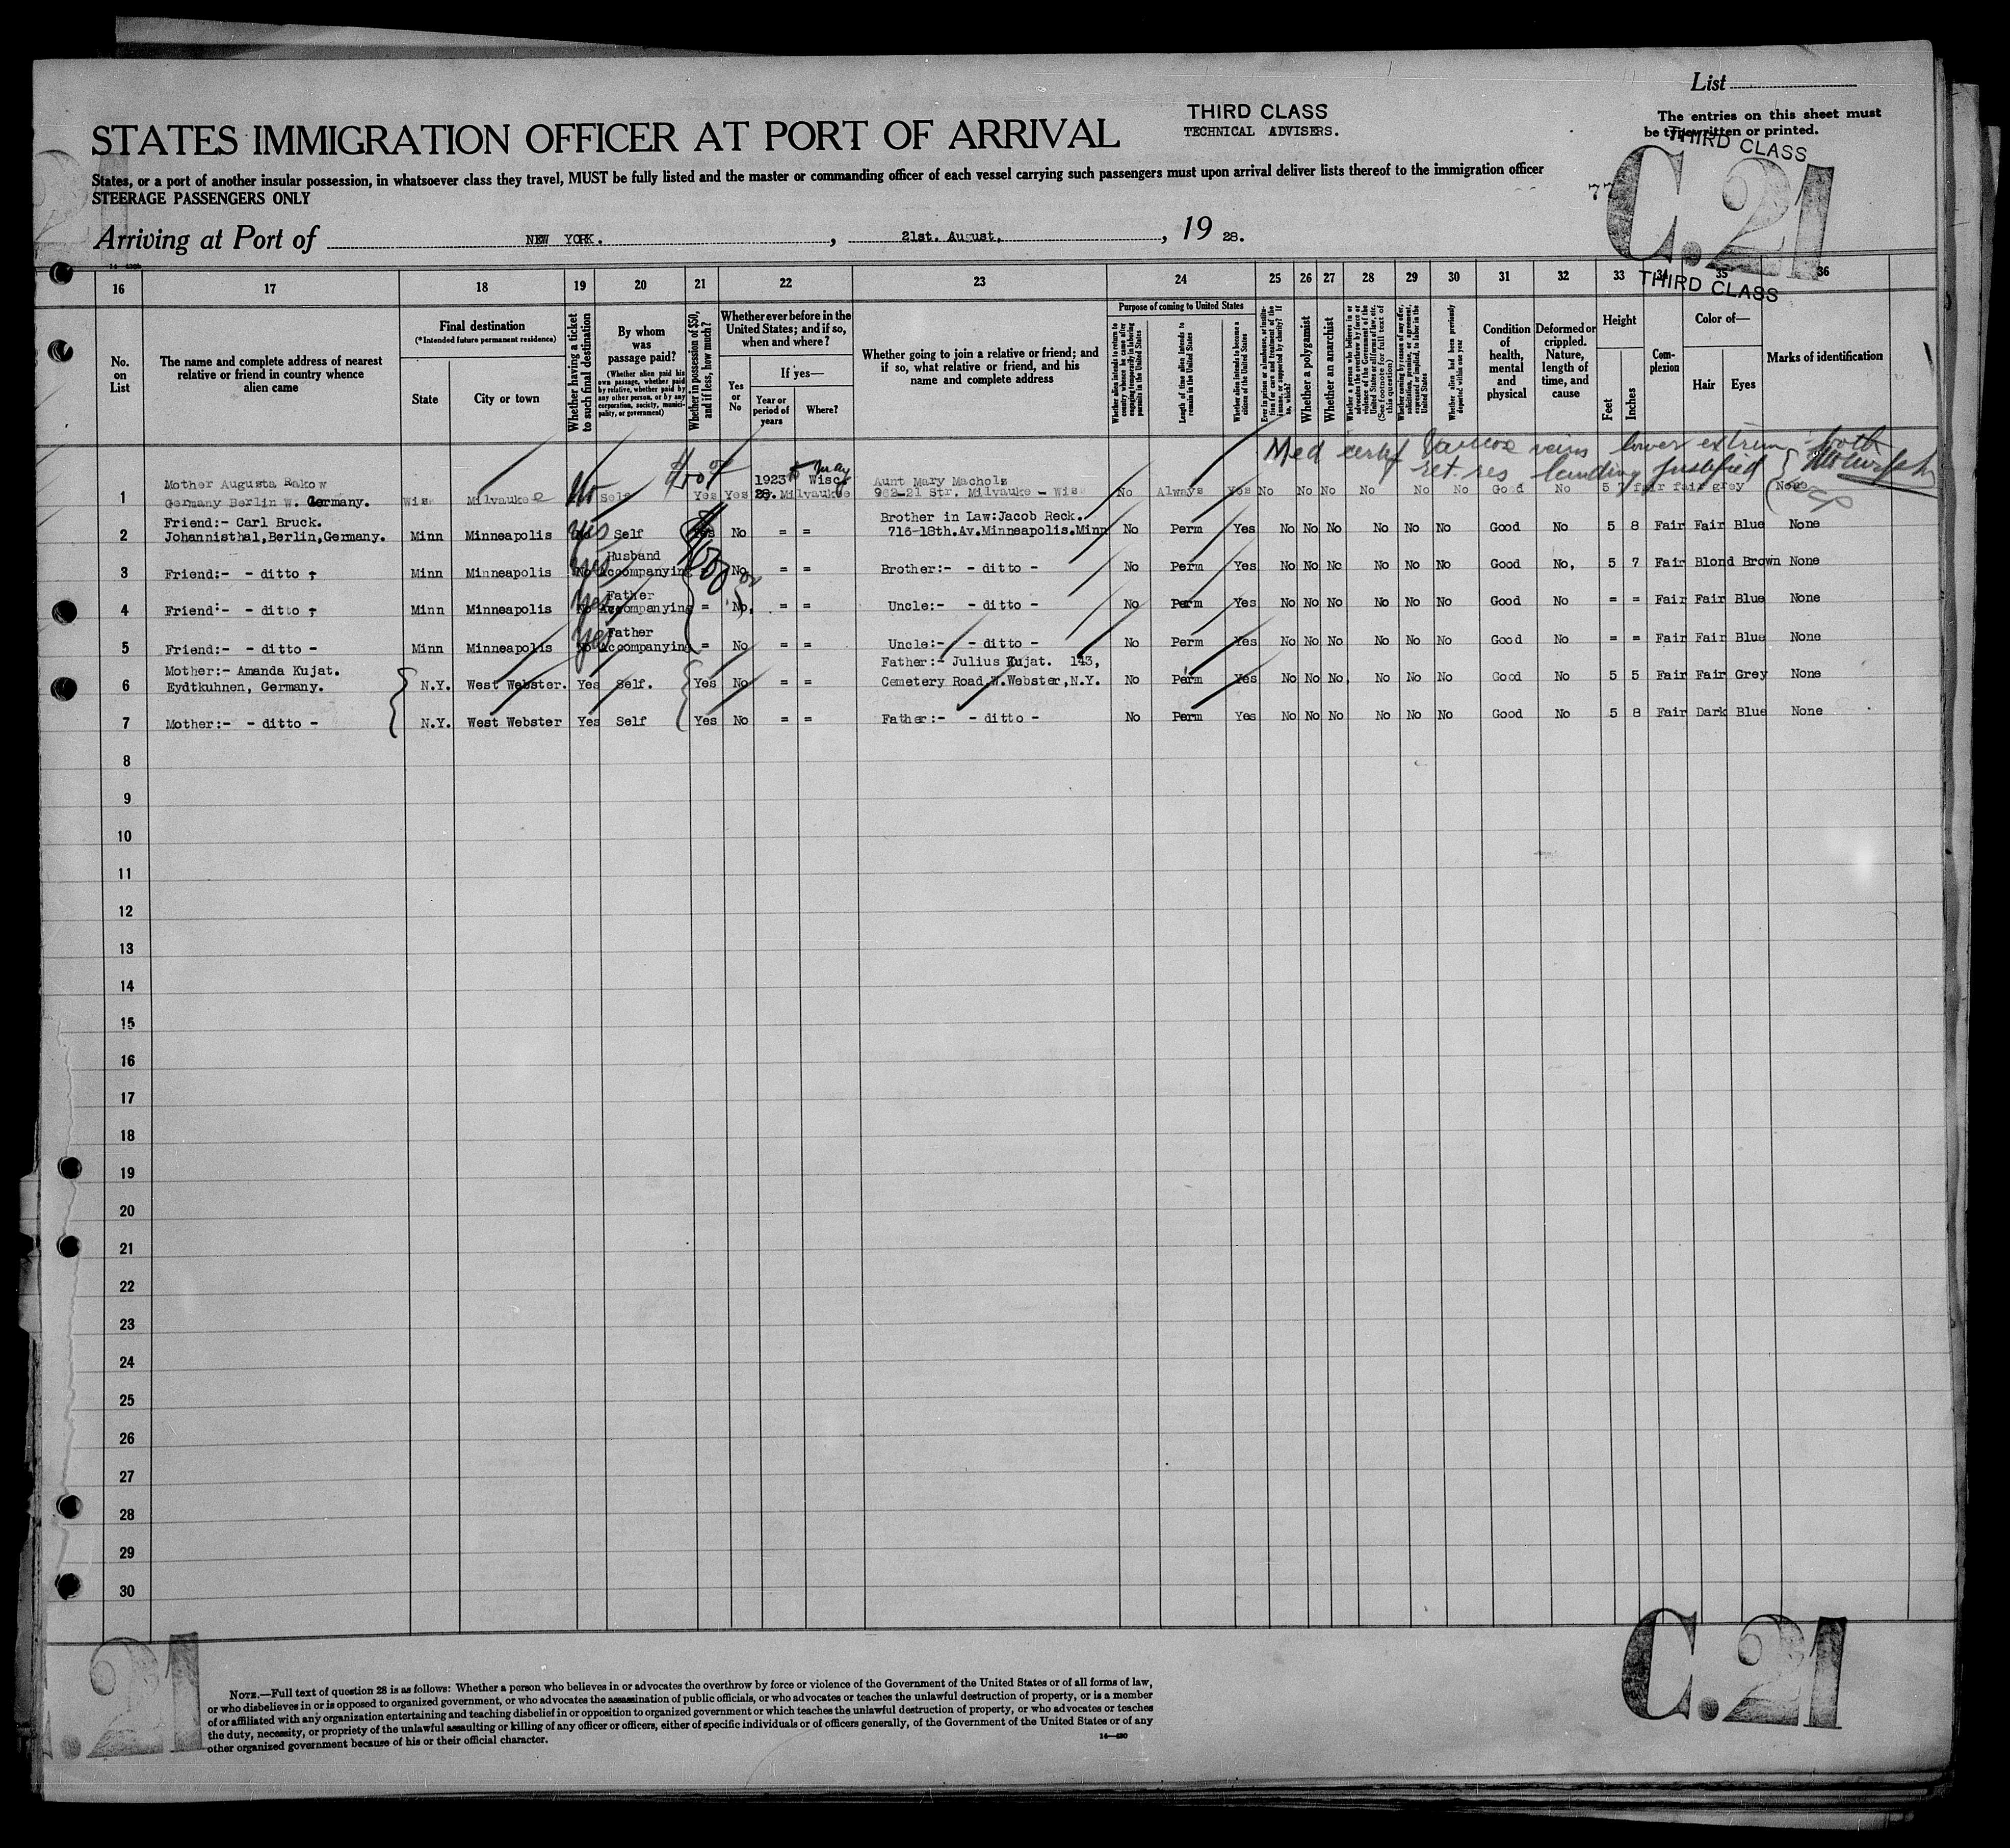 List
THIRD CLASS
TECHNICAL ADVISERS.
The entries on this sheet must
be typewritten or printed.
STATES IMMIGRATION OFFICER AT PORT OF ARRIVAL
THIRD CLASS
C.21
States, or a port of another insular possession, in whatsoever class they travel, MUST be fully listed and the master or commanding officer of each vessel carrying such passengers must upon arrival deliver lists thereof to the immigration officer
STEERAGE PASSENGERS ONLY
Arriving at Port of NEW YORK. , 21st. August, , 19 28.
THIRD CLASS
16 17 18 19 20 21 22 23 24 25 26 27 28 29 30 31 32 33 34 35 36
No. on List
The name and complete address of nearest relative or friend in country whence alien came
Final destination
(*Intended future permanent residence)
State
City or town
Whether having a ticket to such final destination
By whom was passage paid?
(Whether alien paid his own passage, whether paid by relative, whether paid by any other person, or by any corporation, society, municipality, or government)
Whether in possession of $50, and if less, how much?
Whether ever before in the United States; and if so, when and where?
Yes or No
If yes—
Year or period of years
Where?
Whether going to join a relative or friend; and if so, what relative or friend, and his name and complete address
Purpose of coming to United States
Whether alien intends to return to country whence he came after engaging temporarily in laboring pursuits in the United States
Length of time alien intends to remain in the United States
Whether alien intends to become a citizen of the United States
Ever in prison or almshouse, or institution for care and treatment of the insane, or supported by charity? If so, which?
Whether a polygamist
Whether an anarchist
Whether a person who believes in or advocates the overthrow by force or violence of the Government of the United States or all forms of law, etc. (See footnote for full text of this question)
Whether coming by reason of any offer, solicitation, promise, or agreement, expressed or implied, to labor in the United States
Whether alien had been previously deported within one year
Condition of health, mental and physical
Deformed or crippled. Nature, length of time, and cause
Height
Feet
Inches
Complexion
Color of—
Hair
Eyes
Marks of identification
Med certf Varicose veins lower extrem both
ret res landing justified
1 Mother Augusta Rakow
Germany Berlin W. Germany. Wisc Milvaukee No Self Yes Yes 1923 to May 28. Wisc Milvaukee Aunt Mary Macholz
982-21 Str. Milvauke - Wis No Always Yes No No No No No No Good No 5 7 fair fair grey None
2 Friend:- Carl Bruck.
Johannisthal,Berlin,Germany. Minn Minneapolis Yes Self Yes No = = Brother in Law:Jacob Reck.
716-18th.Av.Minneapolis.Minn No Perm Yes No No No No No No Good No 5 8 Fair Fair Blue None
3 Friend:- - ditto - Minn Minneapolis No Yes Husband Accompanying No = = Brother:- - ditto - No Perm Yes No No No No No No Good No, 5 7 Fair Blond Brown None
4 Friend:- - ditto - Minn Minneapolis No Yes Father Accompanying = No, = = Uncle:- - ditto - No Perm Yes No No No No No No Good No = = Fair Fair Blue None
5 Friend:- - ditto - Minn Minneapolis No Yes Father Accompanying = No = = Uncle:- - ditto - No Perm Yes No No No No No No Good No = = Fair Fair Blue None
6 Mother:- Amanda Kujat.
Eydtkuhnen, Germany. N.Y. West Webster. Yes Self. Yes No = = Father:- Julius Kujat. 143,
Cemetery Road,W.Webster,N.Y. No Perm Yes No No No. No No No Good No 5 5 Fair Fair Grey None
7 Mother:- - ditto - N.Y. West Webster Yes Self Yes No = = Father:- - ditto - No Perm Yes No No No No No No Good No 5 8 Fair Dark Blue None
8
9
10
11
12
13
14
15
16
17
18
19
20
21
22
23
24
25
26
27
28
29
30
.21
C.21
NOTE.—Full text of question 28 is as follows: Whether a person who believes in or advocates the overthrow by force or violence of the Government of the United States or of all forms of law,
or who disbelieves in or is opposed to organized government, or who advocates the assassination of public officials, or who advocates or teaches the unlawful destruction of property, or is a member
of or affiliated with any organization entertaining and teaching disbelief in or opposition to organized government or which teaches the unlawful destruction of property, or who advocates or teaches
the duty, necessity, or propriety of the unlawful assaulting or killing of any officer or officers, either of specific individuals or of officers generally, of the Government of the United States or of any
other organized government because of his or their official character.
14—430